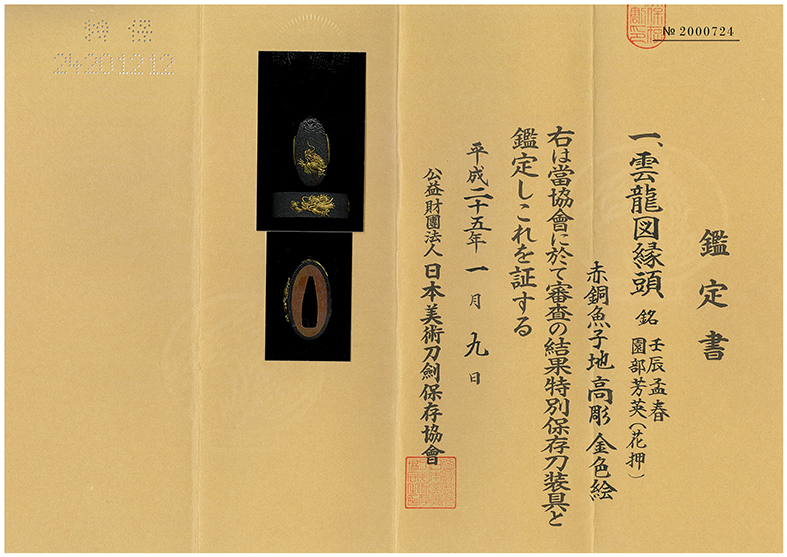 № 2000724
鑑定書
一、雲龍図縁頭 銘 壬辰孟春
園部芳英(花押)
赤銅魚子地高彫金色絵
右は當協會に於て審査の結果特別保存刀装具と
鑑定しこれを証する
平成二十五年一月九日
公益財團法人日本美術刀劍保存協會
特保
24201212